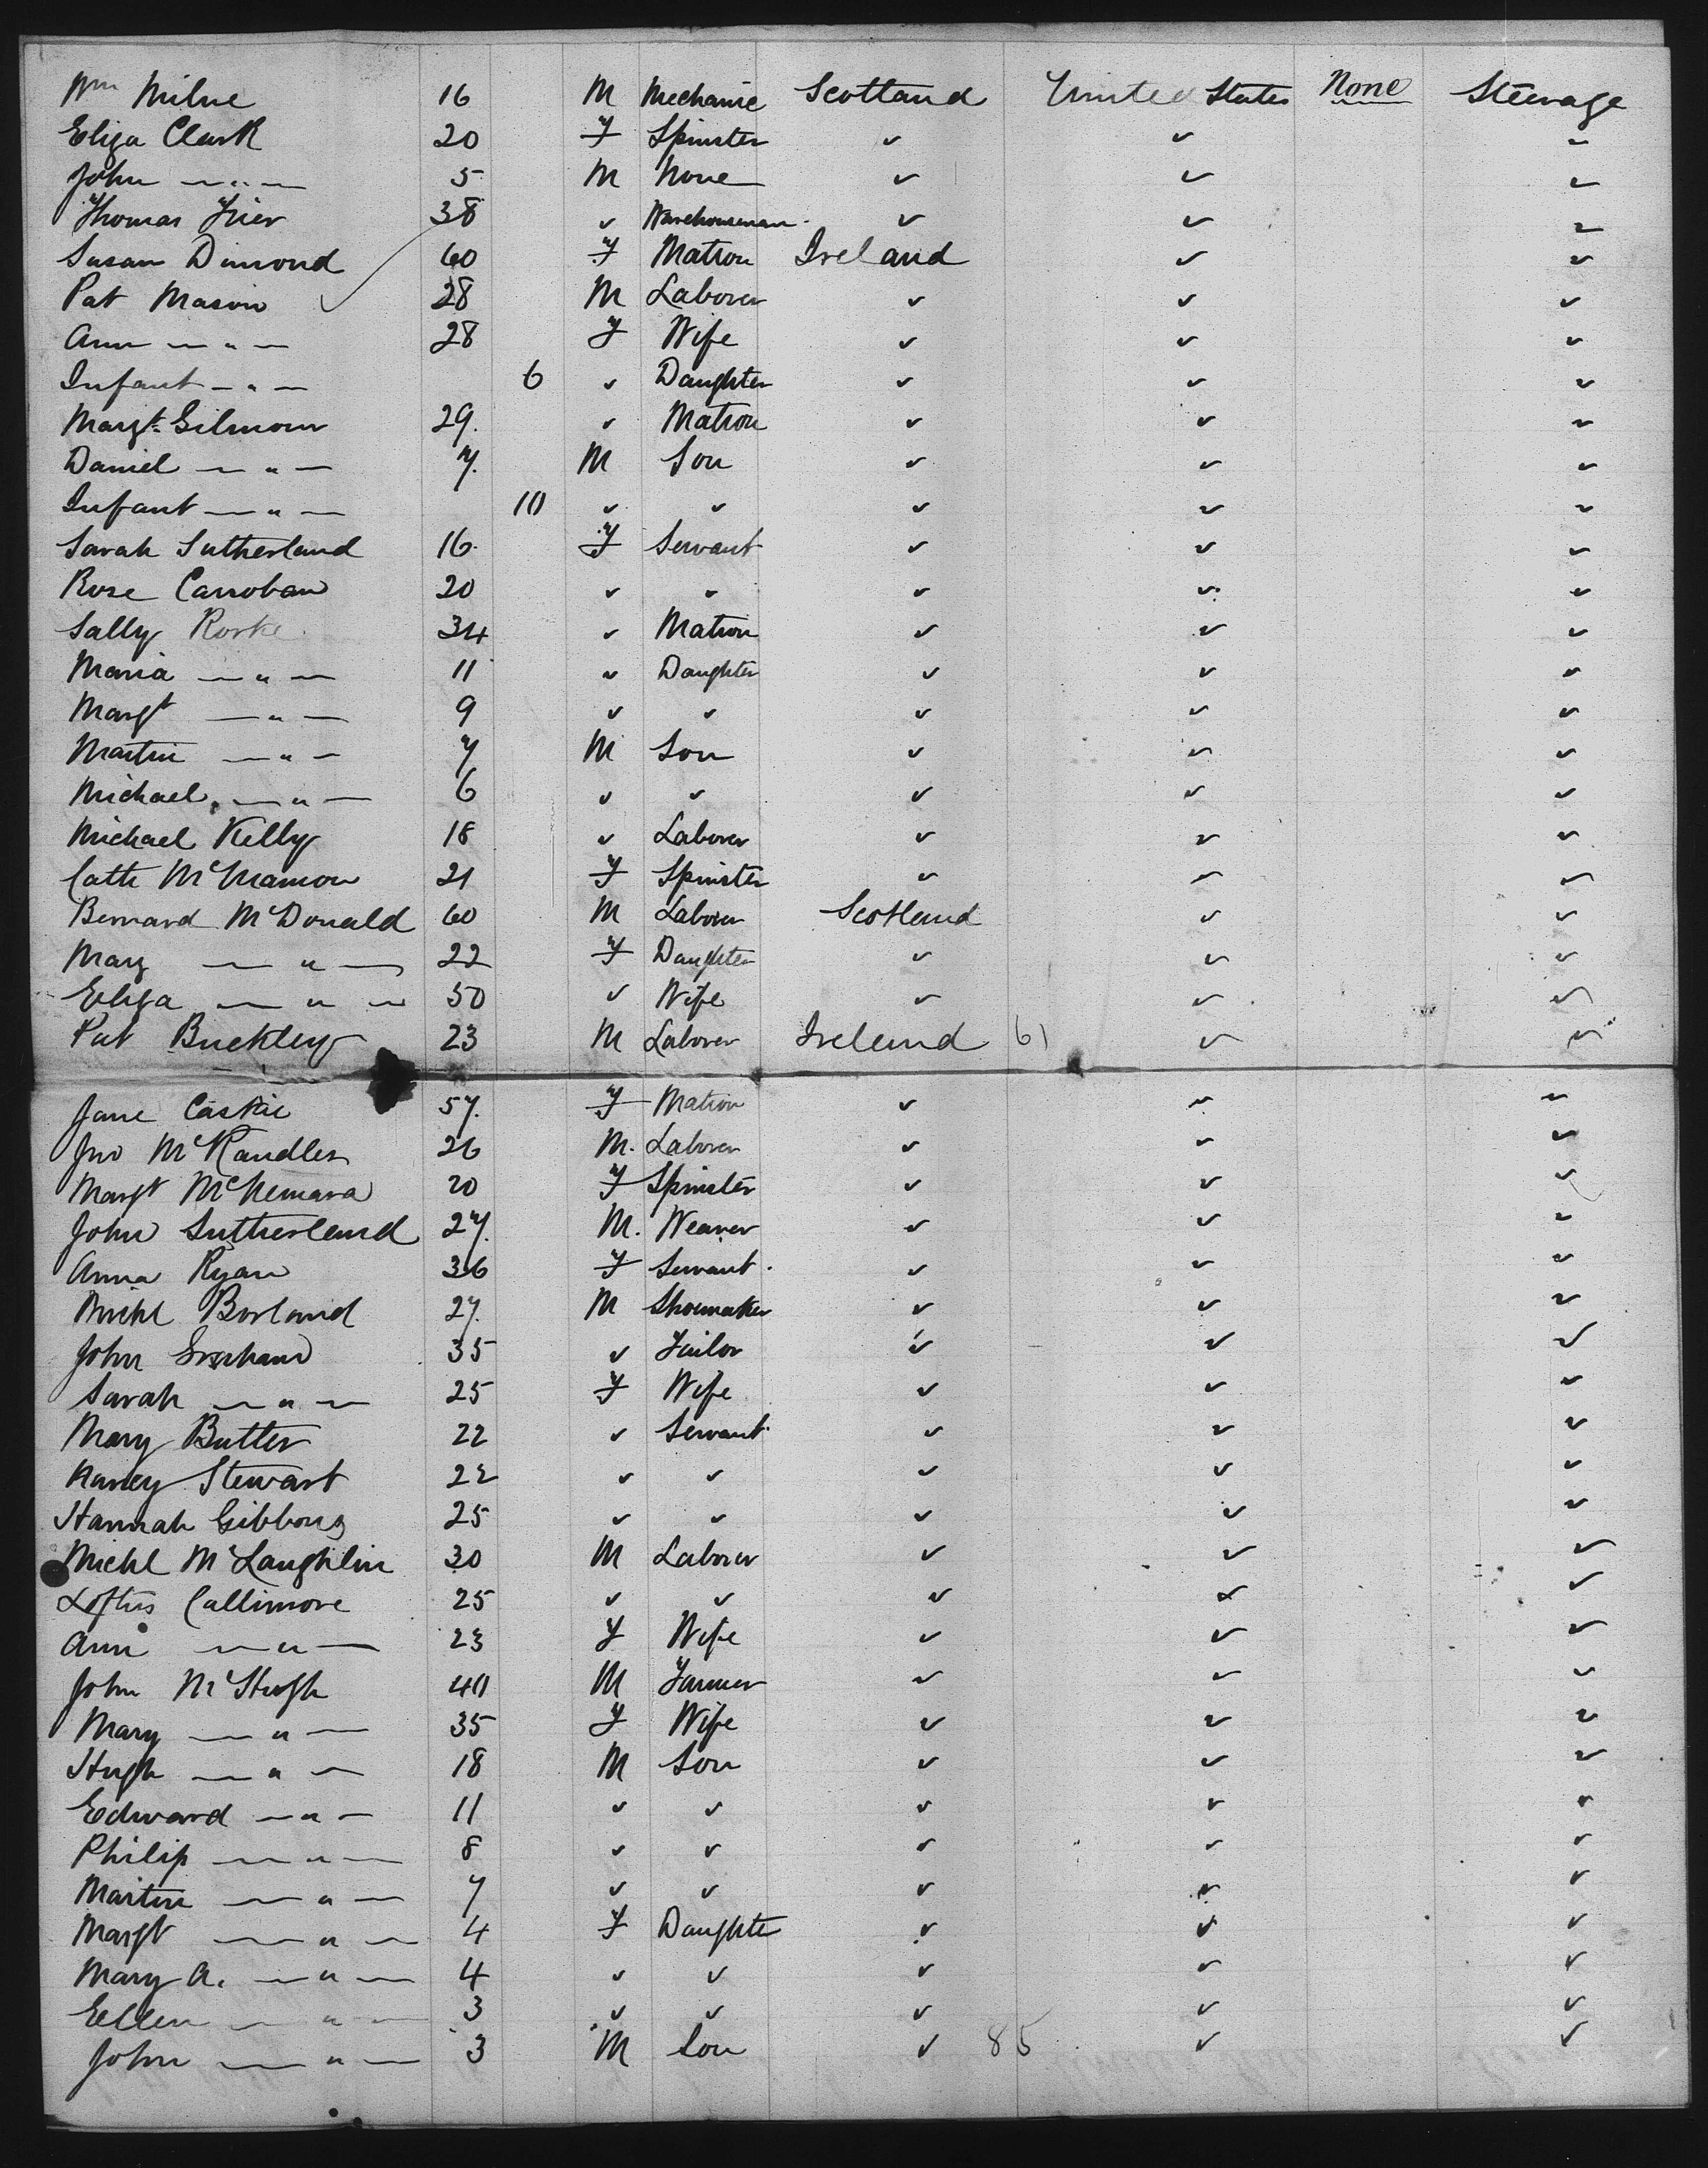 Wm Milne 16 M Mechanic Scotland United States None Steerage
Eliza Clark 20 F Spinster ✓ ✓ ✓
John — " — 5 M None ✓ ✓ ✓
Thomas Frier 38 ✓ Warehouseman ✓ ✓ ✓
Susan Dimond 60 F Matron Ireland ✓ ✓
Pat Mason 28 M Laborer ✓ ✓ ✓
Ann — " — 28 F Wife ✓ ✓ ✓
Infant — " — 6 ✓ Daughter ✓ ✓ ✓
Margt Gilmour 29. ✓ Matron ✓ ✓ ✓
Daniel — " — 7. M Son ✓ ✓ ✓
Infant — " — 10 ✓ ✓ ✓ ✓ ✓
Sarah Sutherland 16 F Servant ✓ ✓ ✓
Rose 20 ✓ ✓ ✓ ✓ ✓
Sally Rorke 34 ✓ Matron ✓ ✓ ✓
Maria — " — 11 ✓ Daughter ✓ ✓ ✓
Margt — " — 9 ✓ ✓ ✓ ✓ ✓
Martin — " — 7 M Son ✓ ✓ ✓
Michael — " — 6 ✓ ✓ ✓ ✓ ✓
Michael Kelly 18 ✓ Laborer ✓ ✓ ✓
Cath 21 F Spinster ✓ ✓ ✓
Bernard McDonald 60 M Laborer Scotland ✓ ✓
Mary — " — 22 F Daughter ✓ ✓ ✓
Eliza — " — 50 ✓ Wife ✓ ✓ ✓
Pat Buckley 23 M Laborer Ireland 61 ✓ ✓
Jane Caskie 57. F Matron ✓ ✓ ✓
Jno McKandles 26 M. Laborer ✓ ✓ ✓
Margt McNemara 20 F Spinster ✓ ✓ ✓
John Sutherland 27. M. Weaver ✓ ✓ ✓
Anna Ryan 36 F Servant ✓ ✓ ✓
Michl Borland 27. M Shoemaker ✓ ✓ ✓
John 35 ✓ Tailor ✓ ✓ ✓
Sarah — " — 25 F Wife ✓ ✓ ✓
Mary Butter 22 ✓ Servant ✓ ✓ ✓
Nancy Stewart 22 ✓ ✓ ✓ ✓ ✓
Hannah Gibbons 25 ✓ ✓ ✓ ✓ ✓
Michl McLaughlin 30 M Laborer ✓ ✓ ✓
Loftus Callimore 25 ✓ ✓ ✓ ✓ ✓
Ann — " — 23 F Wife ✓ ✓ ✓
John McHugh 40 M Farmer ✓ ✓ ✓
Mary — " — 35 F Wife ✓ ✓ ✓
Hugh — " — 18 M Son ✓ ✓ ✓
Edward — " — 11 ✓ ✓ ✓ ✓ ✓
Philip — " — 8 ✓ ✓ ✓ ✓ ✓
Martin — " — 7 ✓ ✓ ✓ ✓ ✓
Margt — " — 4 F Daughter ✓ ✓ ✓
Mary A. — " — 4 ✓ ✓ ✓ ✓ ✓
Ellen — " — 3 ✓ ✓ ✓ ✓ ✓
John — " — 3 M Son ✓ 85 ✓ ✓